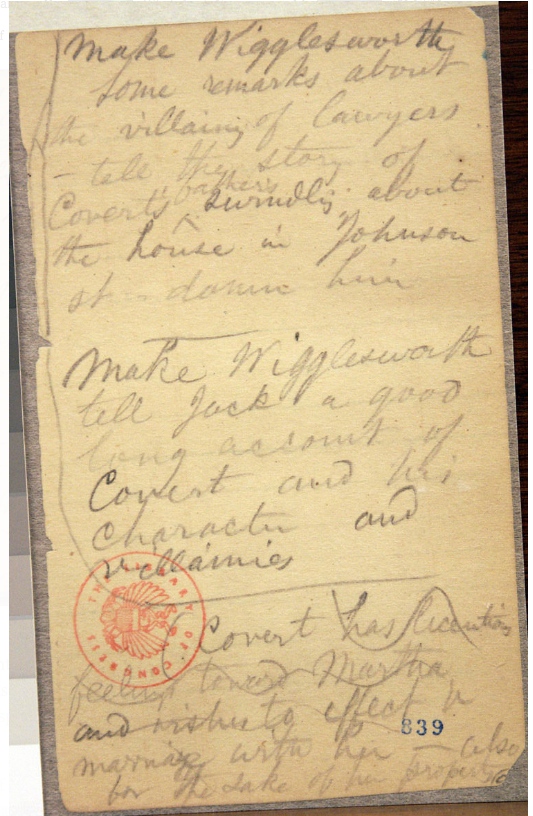 Make Wigglesworth
some remarks about
the villainy of lawyers
– tell the story of
father's
Covert's ^ swindling about
the house in Johnson
st – damn him
Make Wigglesworth
tell Jack a good
long account of
Covert and his
character and
villainies
(Covert has licentious
feelings toward Martha
and wishes to effect a
marriage with her – also
for the sake of her property
THE LIBRARY OF CONGRESS
839